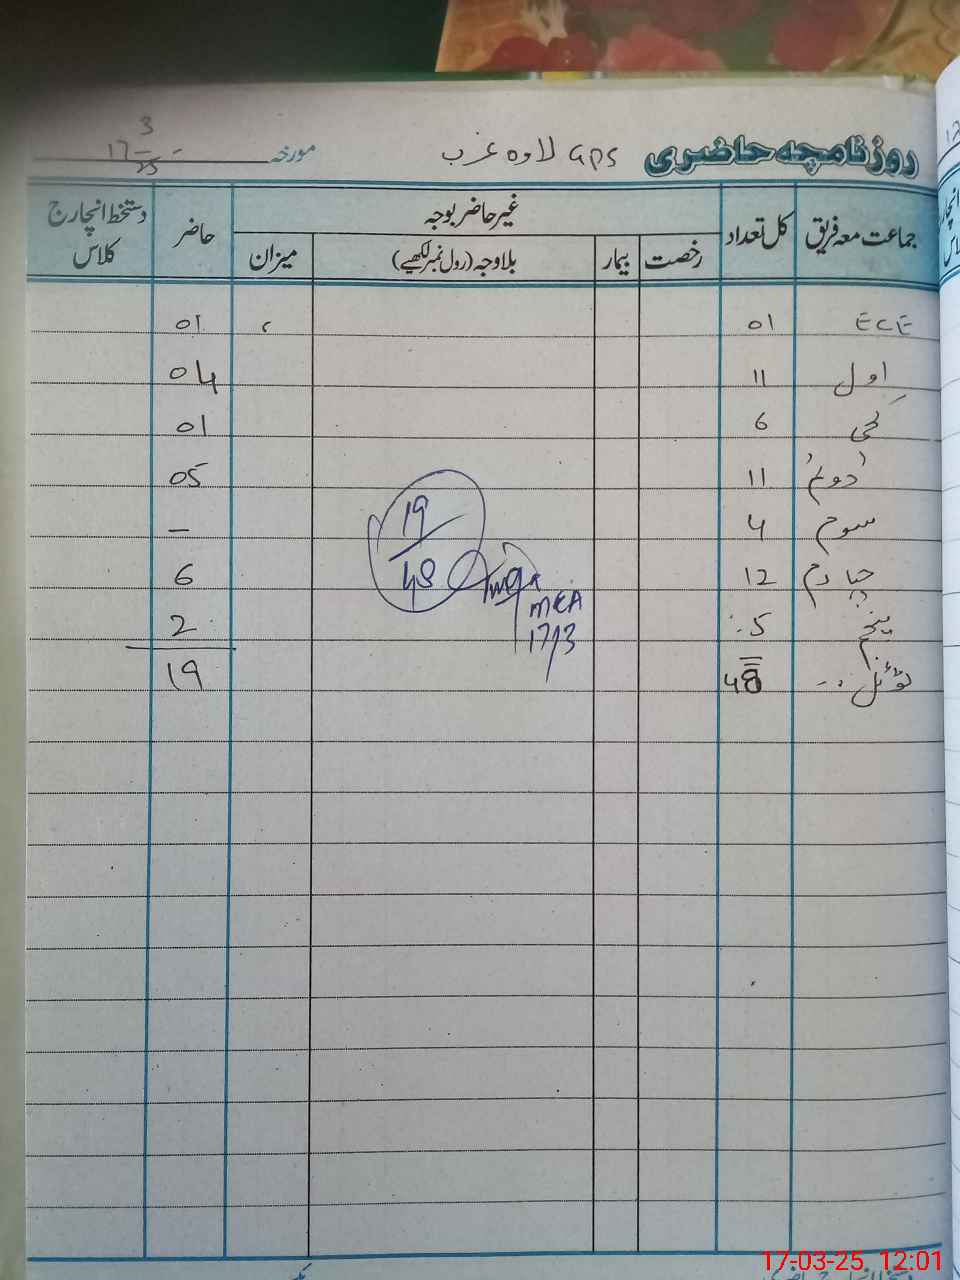 روزنامچہ حاضری GPS لاوہ غرب مورخہ 17 3 25
جماعت معہ فریق کل تعداد غیر حاضر بوجہ حاضر دستخط انچارج کلاس
رخصت بیمار بلاوجہ (رول نمبر لکھیے) میزان
ECE 01 01
اول 11 04
کچی 6 01
دوئم 11 05
سوم 4 –
چہارم 12 6
پنجم 5 2
ٹوٹل 48 19
19
48
MEA
17/3
17-03-25, 12:01